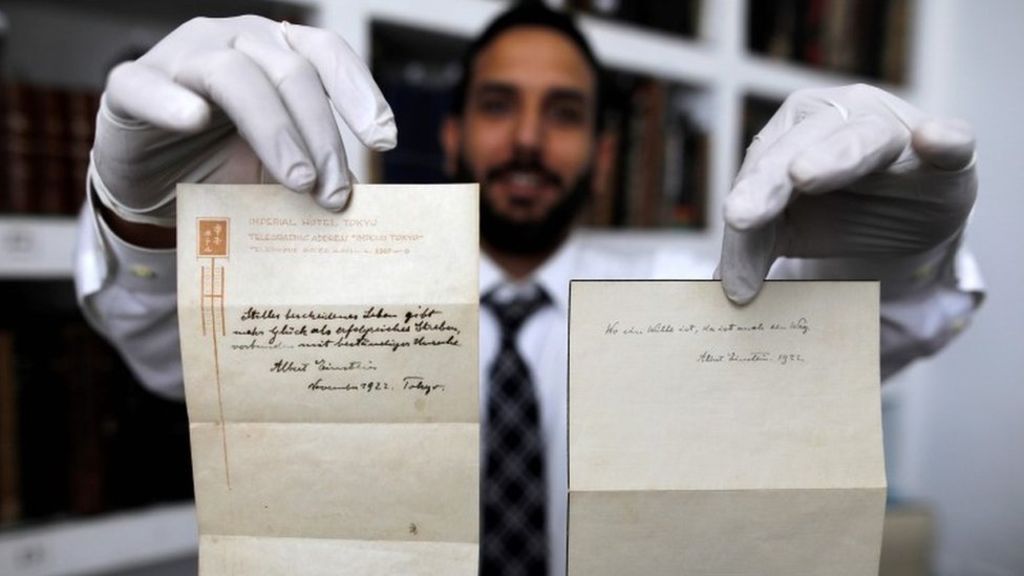 IMPERIAL HOTEL, TOKYO
TELEGRAPHIC ADDRESS "IMPEHO TOKYO"
Stilles bescheidenes Leben gibt
mehr Glück als erfolgreiches Streben,
verbunden mit beständiger Unruhe
Albert Einstein
November 1922. Tokyo.
Wo ein Wille ist, da ist auch ein Weg.
Albert Einstein. 1922.